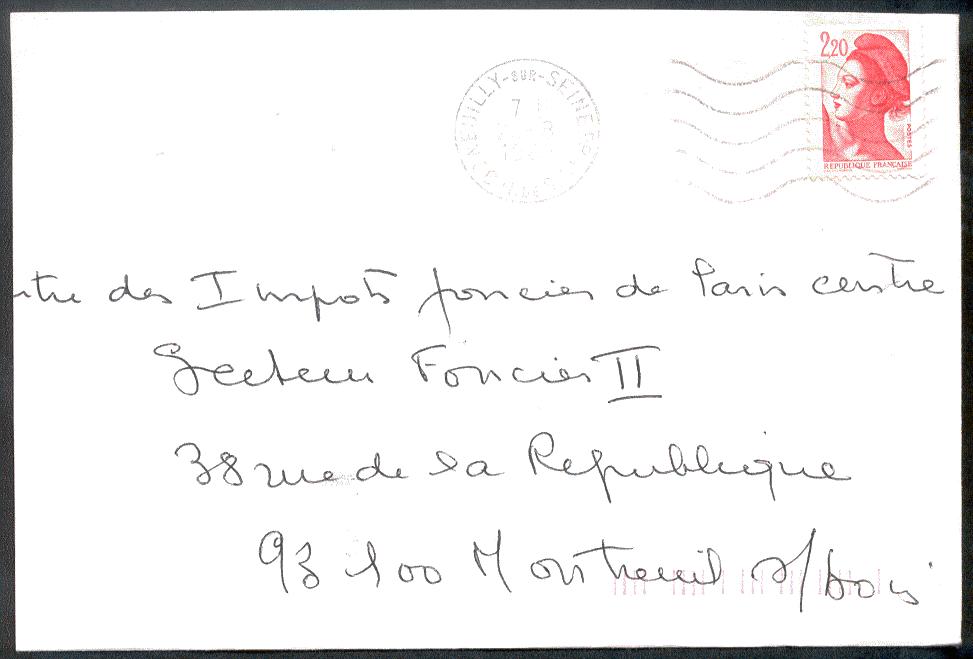 2,20
NEUILLY-SUR-SEINE
7
POSTES
REPUBLIQUE FRANÇAISE
ntre des Impots fonciers de Paris centre
Secteur Foncier II
38 rue de la Republique
93 100 Montreuil s/bois